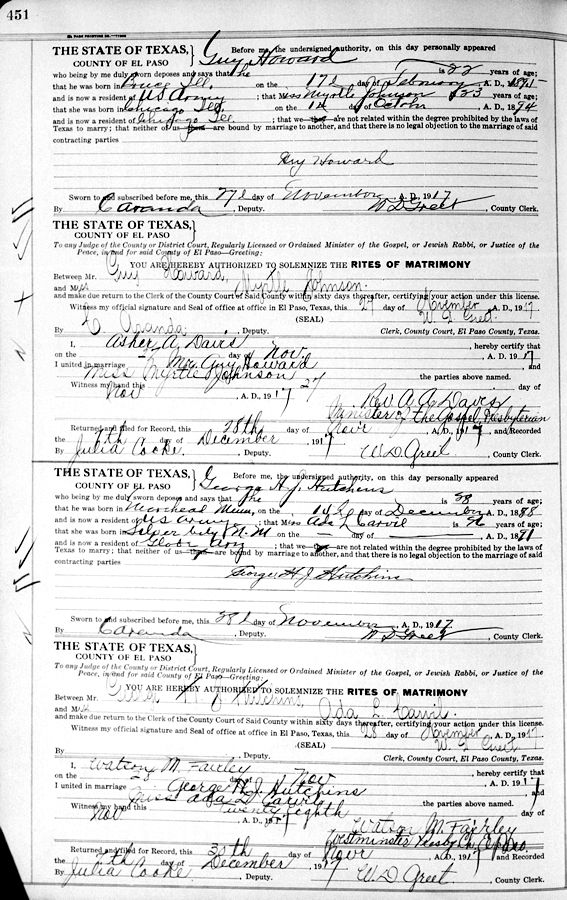 451
EL PASO PRINTING CO.
THE STATE OF TEXAS, Before me, the undersigned authority, on this day personally appeared
COUNTY OF EL PASO Guy Howard
who being by me duly sworn deposes and says that he is 22 years of age;
that he was born in Ill, on the 17th day of February A. D., 18
and is now a resident of US Army ; that Miss Myrtle Johnson is 23 years of age;
that she was born in Chicago Ill on the 14 day of October A. D., 1894
and is now a resident of Chicago Ill ; that we are not related within the degree prohibited by the laws of
Texas to marry; that neither of us are bound by marriage to another, and that there is no legal objection to the marriage of said
contracting parties
Guy Howard
Sworn to and subscribed before me, this 27d day of November A. D., 1917
By C Aranda, Deputy. W D Greet, County Clerk.
THE STATE OF TEXAS,
COUNTY OF EL PASO
To any Judge of the County or District Court, Regularly Licensed or Ordained Minister of the Gospel, or Jewish Rabbi, or Justice of the
Peace, in and for said County of El Paso—Greeting:
YOU ARE HEREBY AUTHORIZED TO SOLEMNIZE THE RITES OF MATRIMONY
Between Mr. Guy Howard,
and Miss Myrtle Johnson
and make due return to the Clerk of the County Court of Said County within sixty days thereafter, certifying your action under this license.
Witness my official signature and Seal of office at El Paso, Texas, this 27 day of November A. D., 1917
(SEAL) W. D. Greet
By C. Aranda, Deputy. Clerk, County Court, El Paso County, Texas.
I Asher A. Davis hereby certify that
on the day of Nov. A. D. 1917
I united in marriage Mr. Guy Howard and
Miss Myrtle Johnson the parties above named.
Witness my hand this 27 day of
Nov A. D. 1917 Rev A A Davis
Minister of the Gospel, Presbyterian
Returned and filed for Record, this 28th day of Novr A. D. 1917 and Recorded
6th day of December 1917
By Julia Cooke, Deputy. W D Greet County Clerk.
THE STATE OF TEXAS, Before me, the undersigned authority, on this day personally appeared
COUNTY OF EL PASO George H. J. Hutchins
who being by me duly sworn deposes and says that he is 28 years of age;
that he was born in Minn, on the day of December A. D., 1888
and is now a resident of US Army ; that Miss Ada L Carvil is 26 years of age;
that she was born in Silver City N. M on the — day of — A. D., 1891
and is now a resident of Ariz ; that we are not related within the degree prohibited by the laws of
Texas to marry; that neither of us are bound by marriage to another, and that there is no legal objection to the marriage of said
contracting parties
George H J Hutchins
Sworn to and subscribed before me, this 28d day of November A. D., 1917
By C Aranda, Deputy. W D Greet, County Clerk.
THE STATE OF TEXAS,
COUNTY OF EL PASO
To any Judge of the County or District Court, Regularly Licensed or Ordained Minister of the Gospel, or Jewish Rabbi, or Justice of the
Peace, in and for said County of El Paso—Greeting:
YOU ARE HEREBY AUTHORIZED TO SOLEMNIZE THE RITES OF MATRIMONY
Between Mr. George H J Hutchins,
and Miss Ada L. Carvil
and make due return to the Clerk of the County Court of Said County within sixty days thereafter, certifying your action under this license.
Witness my official signature and Seal of office at El Paso, Texas, this 28 day of November A. D., 1917
(SEAL) W. D Greet
By Deputy. Clerk, County Court, El Paso County, Texas.
I, Watson M. Fairley hereby certify that
on the 28 day of Nov A. D. 1917
I united in marriage George H. J. Hutchins and
Miss Ada L Carvil the parties above named.
Witness my hand this twenty eighth day of
Nov A. D. 1917 Watson M. Fairley
Westminster Presby Ch. El Paso.
Returned and filed for Record, this 30th day of Novr A. D. 1917 and Recorded
7th day of December 1917
By Julia Cooke, Deputy. W. D. Greet County Clerk.